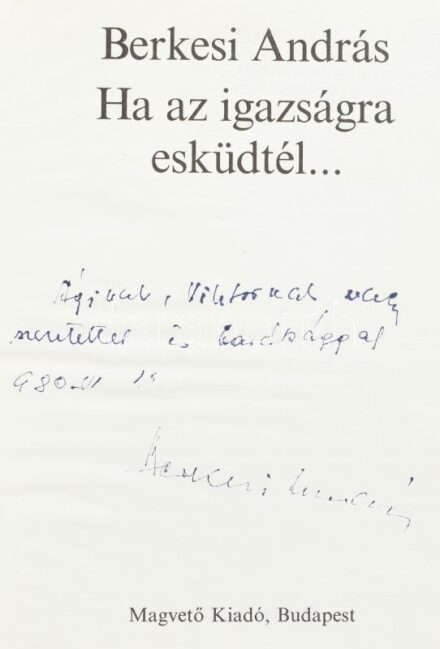 Berkesi András
Ha az igazságra
esküdtél...
Áginak, Viktornak nagy
szeretettel és barátsággal
980. VI
Berkesi András
Magvető Kiadó, Budapest